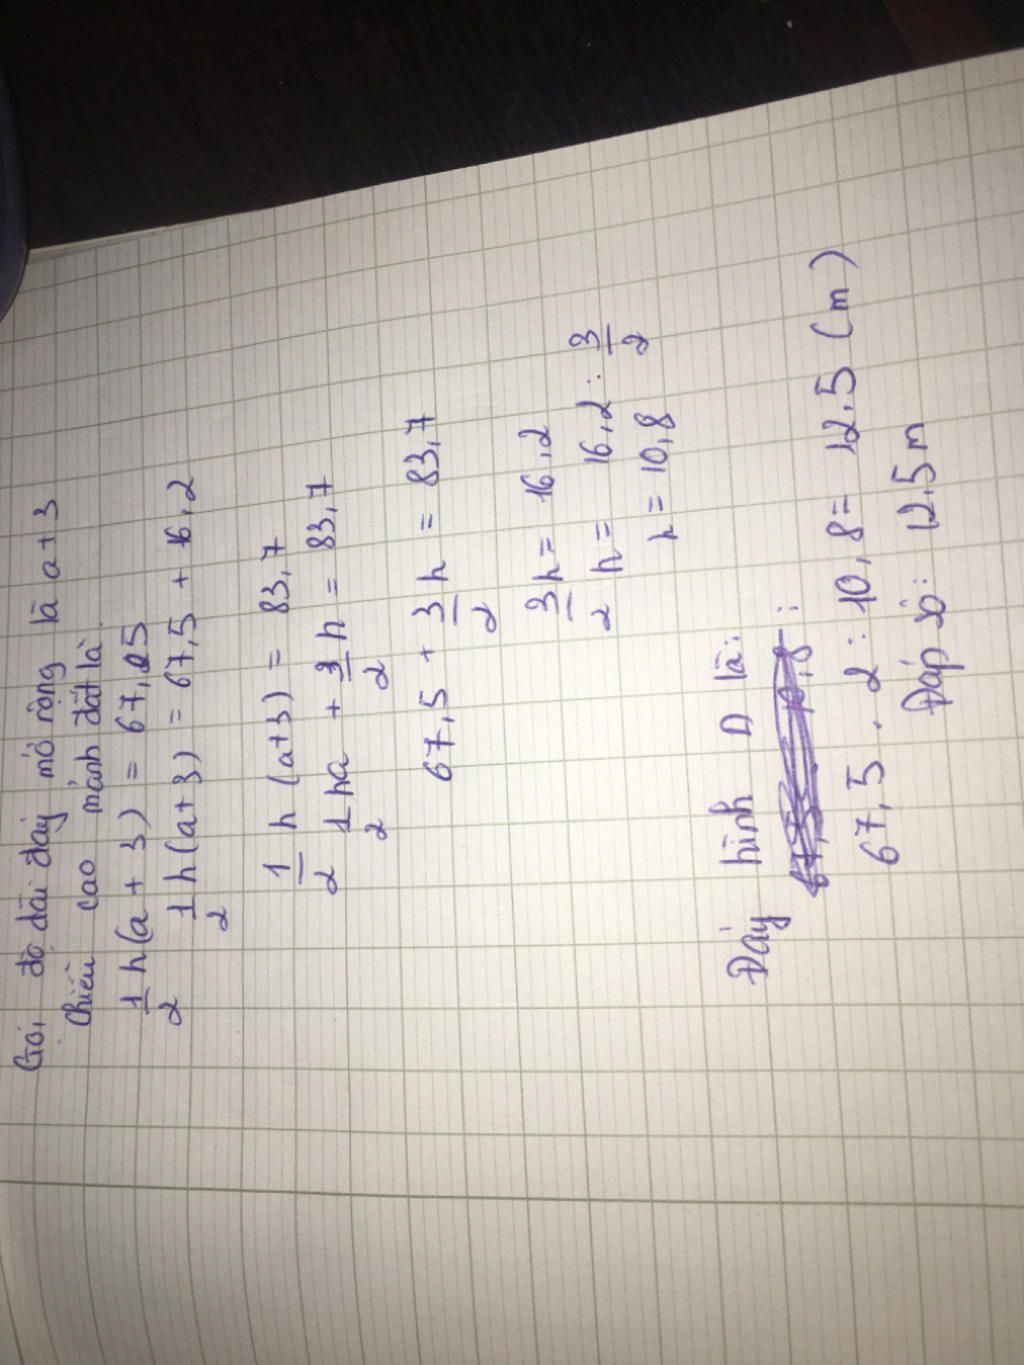 Gọi độ dài đáy mở rộng là a+3
Chiều cao mảnh đất là
1/2 h(a + 3) = 67,25
1/2 h(a+3) = 67,5 + 16,2
1/2 h (a+3) = 83,7
1/2 ha + 3/2 h = 83,7
67,5 + 3/2 h = 83,7
3/2 h = 16,2
h = 16,2 : 3/2
h = 10,8
Đáy hình Δ là:
67,5 . 2 : 10,8 = 12,5 (m)
Đáp số: 12,5 m